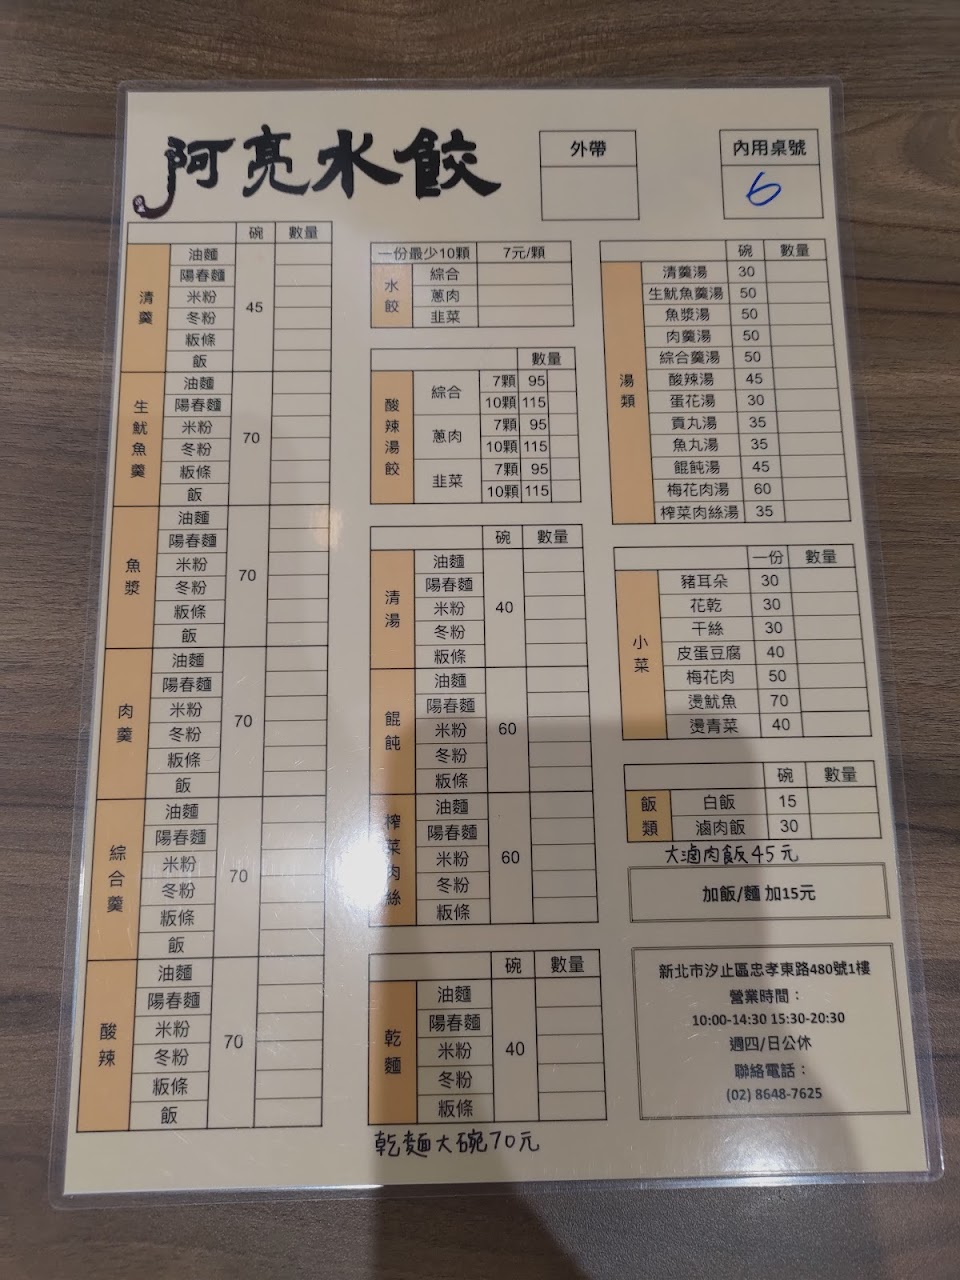 阿亮水餃
外帶
內用桌號
6
碗 數量
清羹
油麵
陽春麵
米粉
冬粉
粄條
飯
45
生魷魚羹
油麵
陽春麵
米粉
冬粉
粄條
飯
70
魚漿
油麵
陽春麵
米粉
冬粉
粄條
飯
70
肉羹
油麵
陽春麵
米粉
冬粉
粄條
飯
70
綜合羹
油麵
陽春麵
米粉
冬粉
粄條
飯
70
酸辣
油麵
陽春麵
米粉
冬粉
粄條
飯
70
一份最少10顆 7元/顆
水餃
綜合
蔥肉
韭菜
數量
酸辣湯餃
綜合 7顆 95
10顆 115
蔥肉 7顆 95
10顆 115
韭菜 7顆 95
10顆 115
碗 數量
清湯
油麵
陽春麵
米粉
冬粉
粄條
40
餛飩
油麵
陽春麵
米粉
冬粉
粄條
60
榨菜肉絲
油麵
陽春麵
米粉
冬粉
粄條
60
碗 數量
乾麵
油麵
陽春麵
米粉
冬粉
粄條
40
乾麵大碗70元
碗 數量
湯類
清羹湯 30
生魷魚羹湯 50
魚漿湯 50
肉羹湯 50
綜合羹湯 50
酸辣湯 45
蛋花湯 30
貢丸湯 35
魚丸湯 35
餛飩湯 45
梅花肉湯 60
榨菜肉絲湯 35
一份 數量
小菜
豬耳朵 30
花乾 30
干絲 30
皮蛋豆腐 40
梅花肉 50
燙魷魚 70
燙青菜 40
碗 數量
飯類
白飯 15
滷肉飯 30
大滷肉飯45元
加飯/麵 加15元
新北市汐止區忠孝東路480號1樓
營業時間：
10:00-14:30 15:30-20:30
週四/日公休
聯絡電話：
(02) 8648-7625